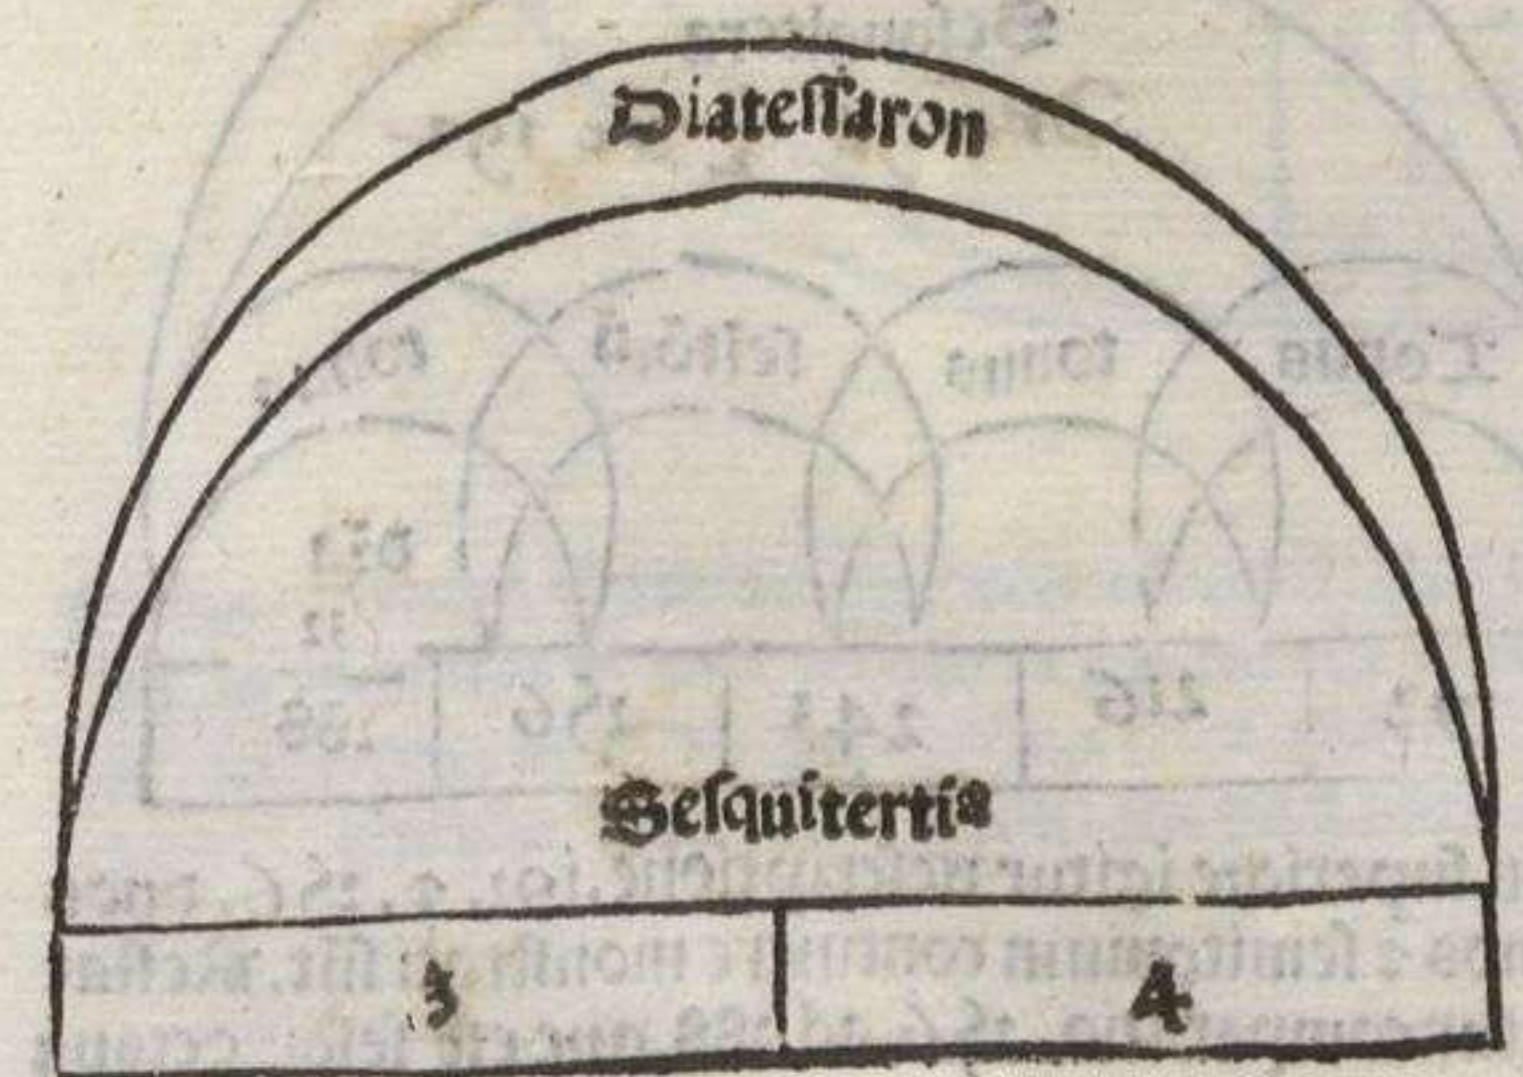 Diateſſaron
Seſquitertia
3 4